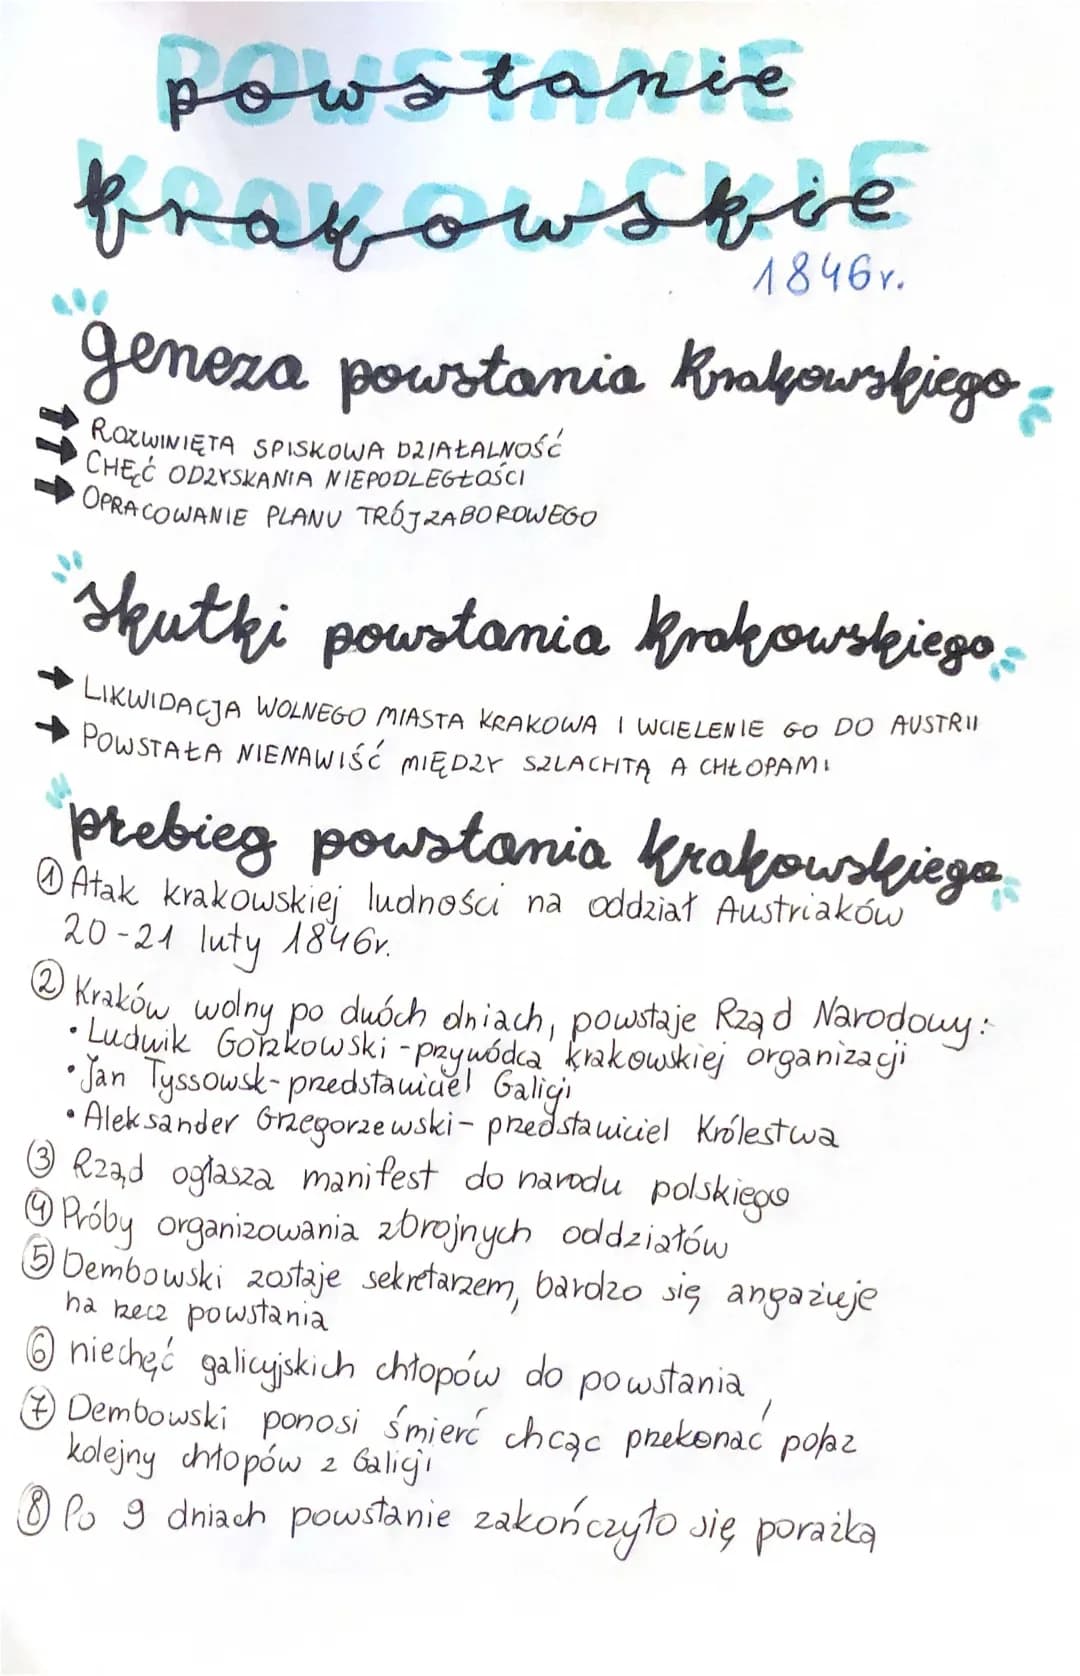 powstanie
krakowskie
1846r.
geneza powstania krakowskiego
ROZWINIĘTA SPISKOWA DZIAŁALNOŚĆ
CHĘĆ ODZYSKANIA NIEPODLEGŁOŚCI
OPRACOWANIE PLANU TRÓJZABOROWEGO
skutki powstania krakowskiego
LIKWIDACJA WOLNEGO MIASTA KRAKOWA I WCIELENIE GO DO AUSTRII
POWSTAŁA NIENAWIŚĆ MIĘDZY SZLACHTĄ A CHŁOPAMI
przebieg powstania krakowskiego
① Atak krakowskiej ludności na oddział Austriaków
20-21 luty 1846r.
② Kraków wolny po dwóch dniach, powstaje Rząd Narodowy:
• Ludwik Gorzkowski - przywódca krakowskiej organizacji
• Jan Tyssowsk - przedstawiciel Galicji
• Aleksander Grzegorzewski - przedstawiciel Królestwa
③ Rząd ogłasza manifest do narodu polskiego
④ Próby organizowania zbrojnych oddziałów
⑤ Dembowski zostaje sekretarzem, bardzo się angażuje
na rzecz powstania
⑥ niechęć galicyjskich chłopów do powstania
⑦ Dembowski ponosi śmierć chcąc przekonać poraz
kolejny chłopów z Galicji
⑧ Po 9 dniach powstanie zakończyło się porażką